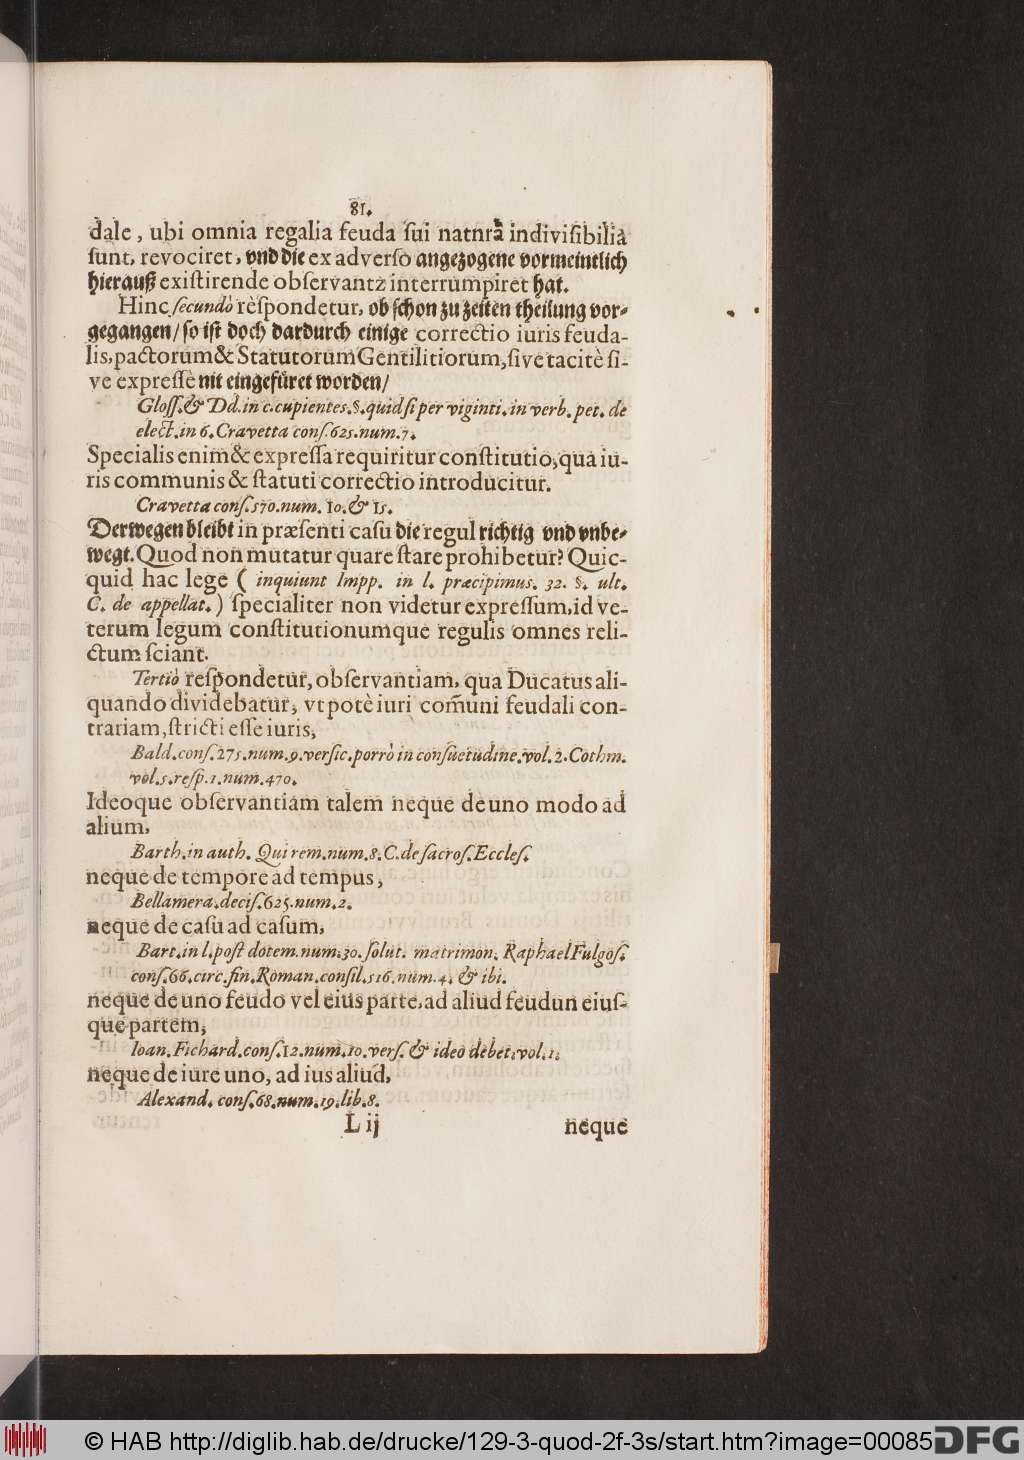 81.
dale, ubi omnia regalia feuda ſui natnrâ indiviſibilia
ſunt, revociret, vnd die ex adverſo angezogene vormeintlich
hierauß exiſtirende obſervantz interrumpiret hat.
Hinc ſecundò reſpondetur, ob ſchon zu zeiten theilung vor-
gegangen/ ſo iſt doch dardurch einige correctio iuris feuda-
lis, pactorum & Statutorum Gentilitiorum, ſive tacitè ſi-
ve expreſſè nit eingefüret worden/
Gloſſ. & Dd. in c. cupientes. §. quid ſi per viginti. in verb. pet. de
elect. in 6. Cravetta conſ. 625. num. 7.
Specialis enim & expreſſa requiritur conſtitutio, quâ iu-
ris communis & ſtatuti correctio introducitur.
Cravetta conſ. 570. num. 10. & 15.
Derwegen bleibt in præſenti caſu die regul richtig vnd vnbe-
wegt. Quod non mutatur quare ſtare prohibetur? Quic-
quid hac lege ( inquiunt Impp. in l. præcipimus. 32. §. ult.
C. de appellat. ) ſpecialiter non videtur expreſſum, id ve-
terum legum conſtitutionumque regulis omnes reli-
ctum ſciant.
Tertiò reſpondetur, obſervantiam, qua Ducatus ali-
quando dividebatur, vt potè iuri com̃uni feudali con-
trariam, ſtricti eſſe iuris,
Bald. conſ. 275. num. 9. verſic. porrò in conſuetudine. vol. 2. Cothm.
vol. 5. reſp. 1. num. 470.
Ideoque obſervantiam talem neque de uno modo ad
alium,
Barth. in auth. Qui rem. num. 8. C. de ſacroſ. Eccleſ.
neque de tempore ad tempus,
Bellamera. deciſ. 625. num. 2.
neque de caſu ad caſum,
Bart. in l. poſt dotem. num. 30. ſolut. matrimon. Raphael Fulgoſ.
conſ. 66. circ. fin. Roman. conſil. 516. num. 4. & ibi.
neque de uno feudo vel eius parte, ad aliud feudun eiuſ-
que partem,
Ioan. Fichard. conſ. 12. num. 10. verſ. & ideo debet. vol. 1.
neque de iure uno, ad ius aliud,
Alexand. conſ. 68. num. 19. lib. 8.
L ij neque
© HAB http://diglib.hab.de/drucke/129-3-quod-2f-3s/start.htm?image=00085
DFG